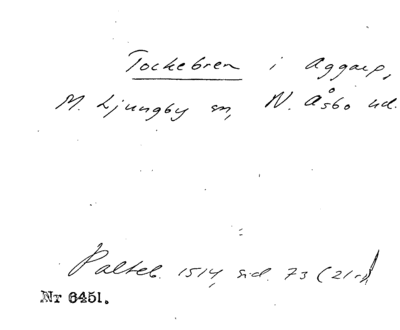 Tockebren i Aggarp,
M. Ljungby sn, N. Åsbo hd.
Palteb. 1514, sid. 73 (21r)
Nr 6451.